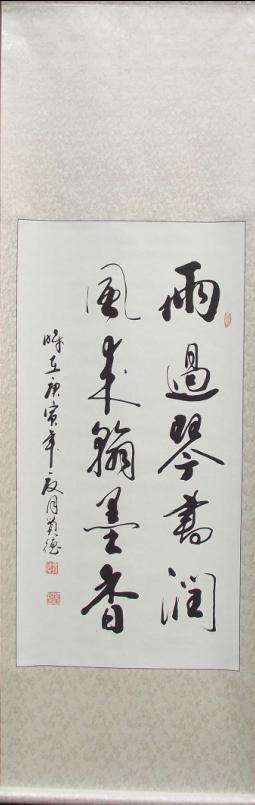 雨過琴書潤
風來翰墨香
時在庚寅年夏月英德